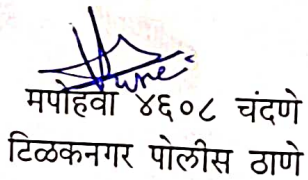 मपोहवा ४६०८ चंदणे
टिळकनगर पोलीस ठाणे